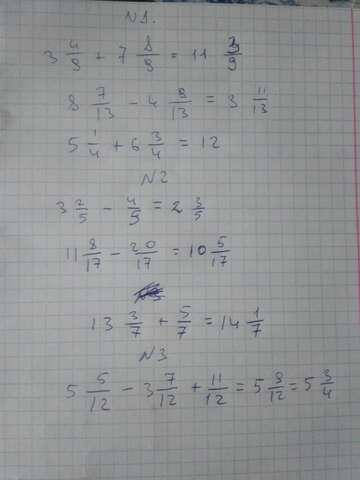 N1.
3 4/9 + 7 8/9 = 11 3/9
8 7/13 - 4 9/13 = 3 11/13
5 1/4 + 6 3/4 = 12
N2
3 2/5 - 4/5 = 2 3/5
11 8/17 - 20/17 = 10 5/17
13 3/7 + 5/7 = 14 1/7
N3
5 5/12 - 3 7/12 + 11/12 = 5 9/12 = 5 3/4